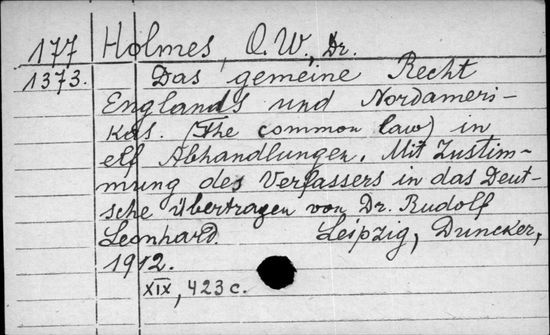 177 Holmes, O. W., Dr.
1373. Das gemeine Recht
Englands und Nordameri-
kas. (The common law) in
elf Abhandlungen. Mit Zustim-
mung des Verfassers in das Deut-
sche übertragen von Dr. Rudolf
Leonhard. Leipzig, Duncker,
1912.
XIX, 423 c.